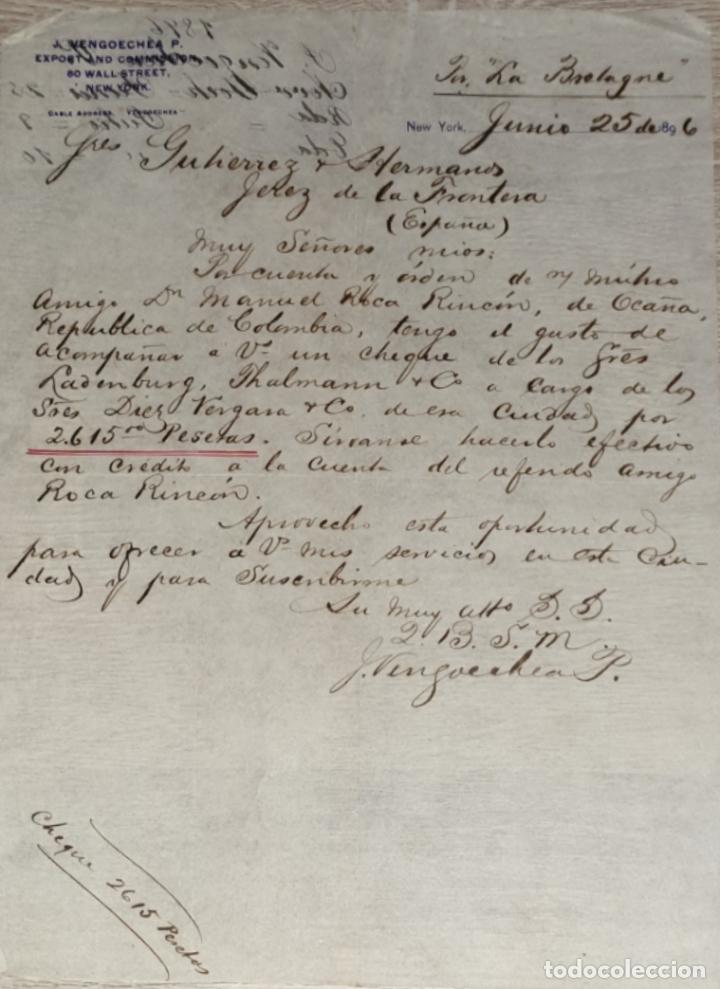 J. VENGOECHEA P.
EXPORT AND COMMISSION
60 WALL STREET,
NEW YORK.
CABLE ADDRESS, VENGOECHEA
Por "La Bretagne"
New York, Junio 25 de 1896
Sres Gutierrez & Hermanos
Jerez de la Frontera
(España)
Muy Señores mios:
Por cuenta y órden de n/ mútuo
Amigo Dn Manuel Roca Rincón, de Ocaña,
Republica de Colombia, tengo el gusto de
acompañar á Vs un cheque de los Sres
Ladenburg, Thalmann & Co a cargo de los
Sres Diez Vergara & Co. de esa Ciudad por
2.615 00 Pesetas. Sírvanse hacerlo efectivo
con crédito á la cuenta del referido amigo
Roca Rincón.
Aprovecho esta oportunidad
para ofrecer á Vs mis servicios en esta Ciu-
dad y para Suscribirme
Su muy atto S. S.
Q. B. S. M.
J. Vengoechea P.
Cheque 2615 Pesetas
todocoleccion